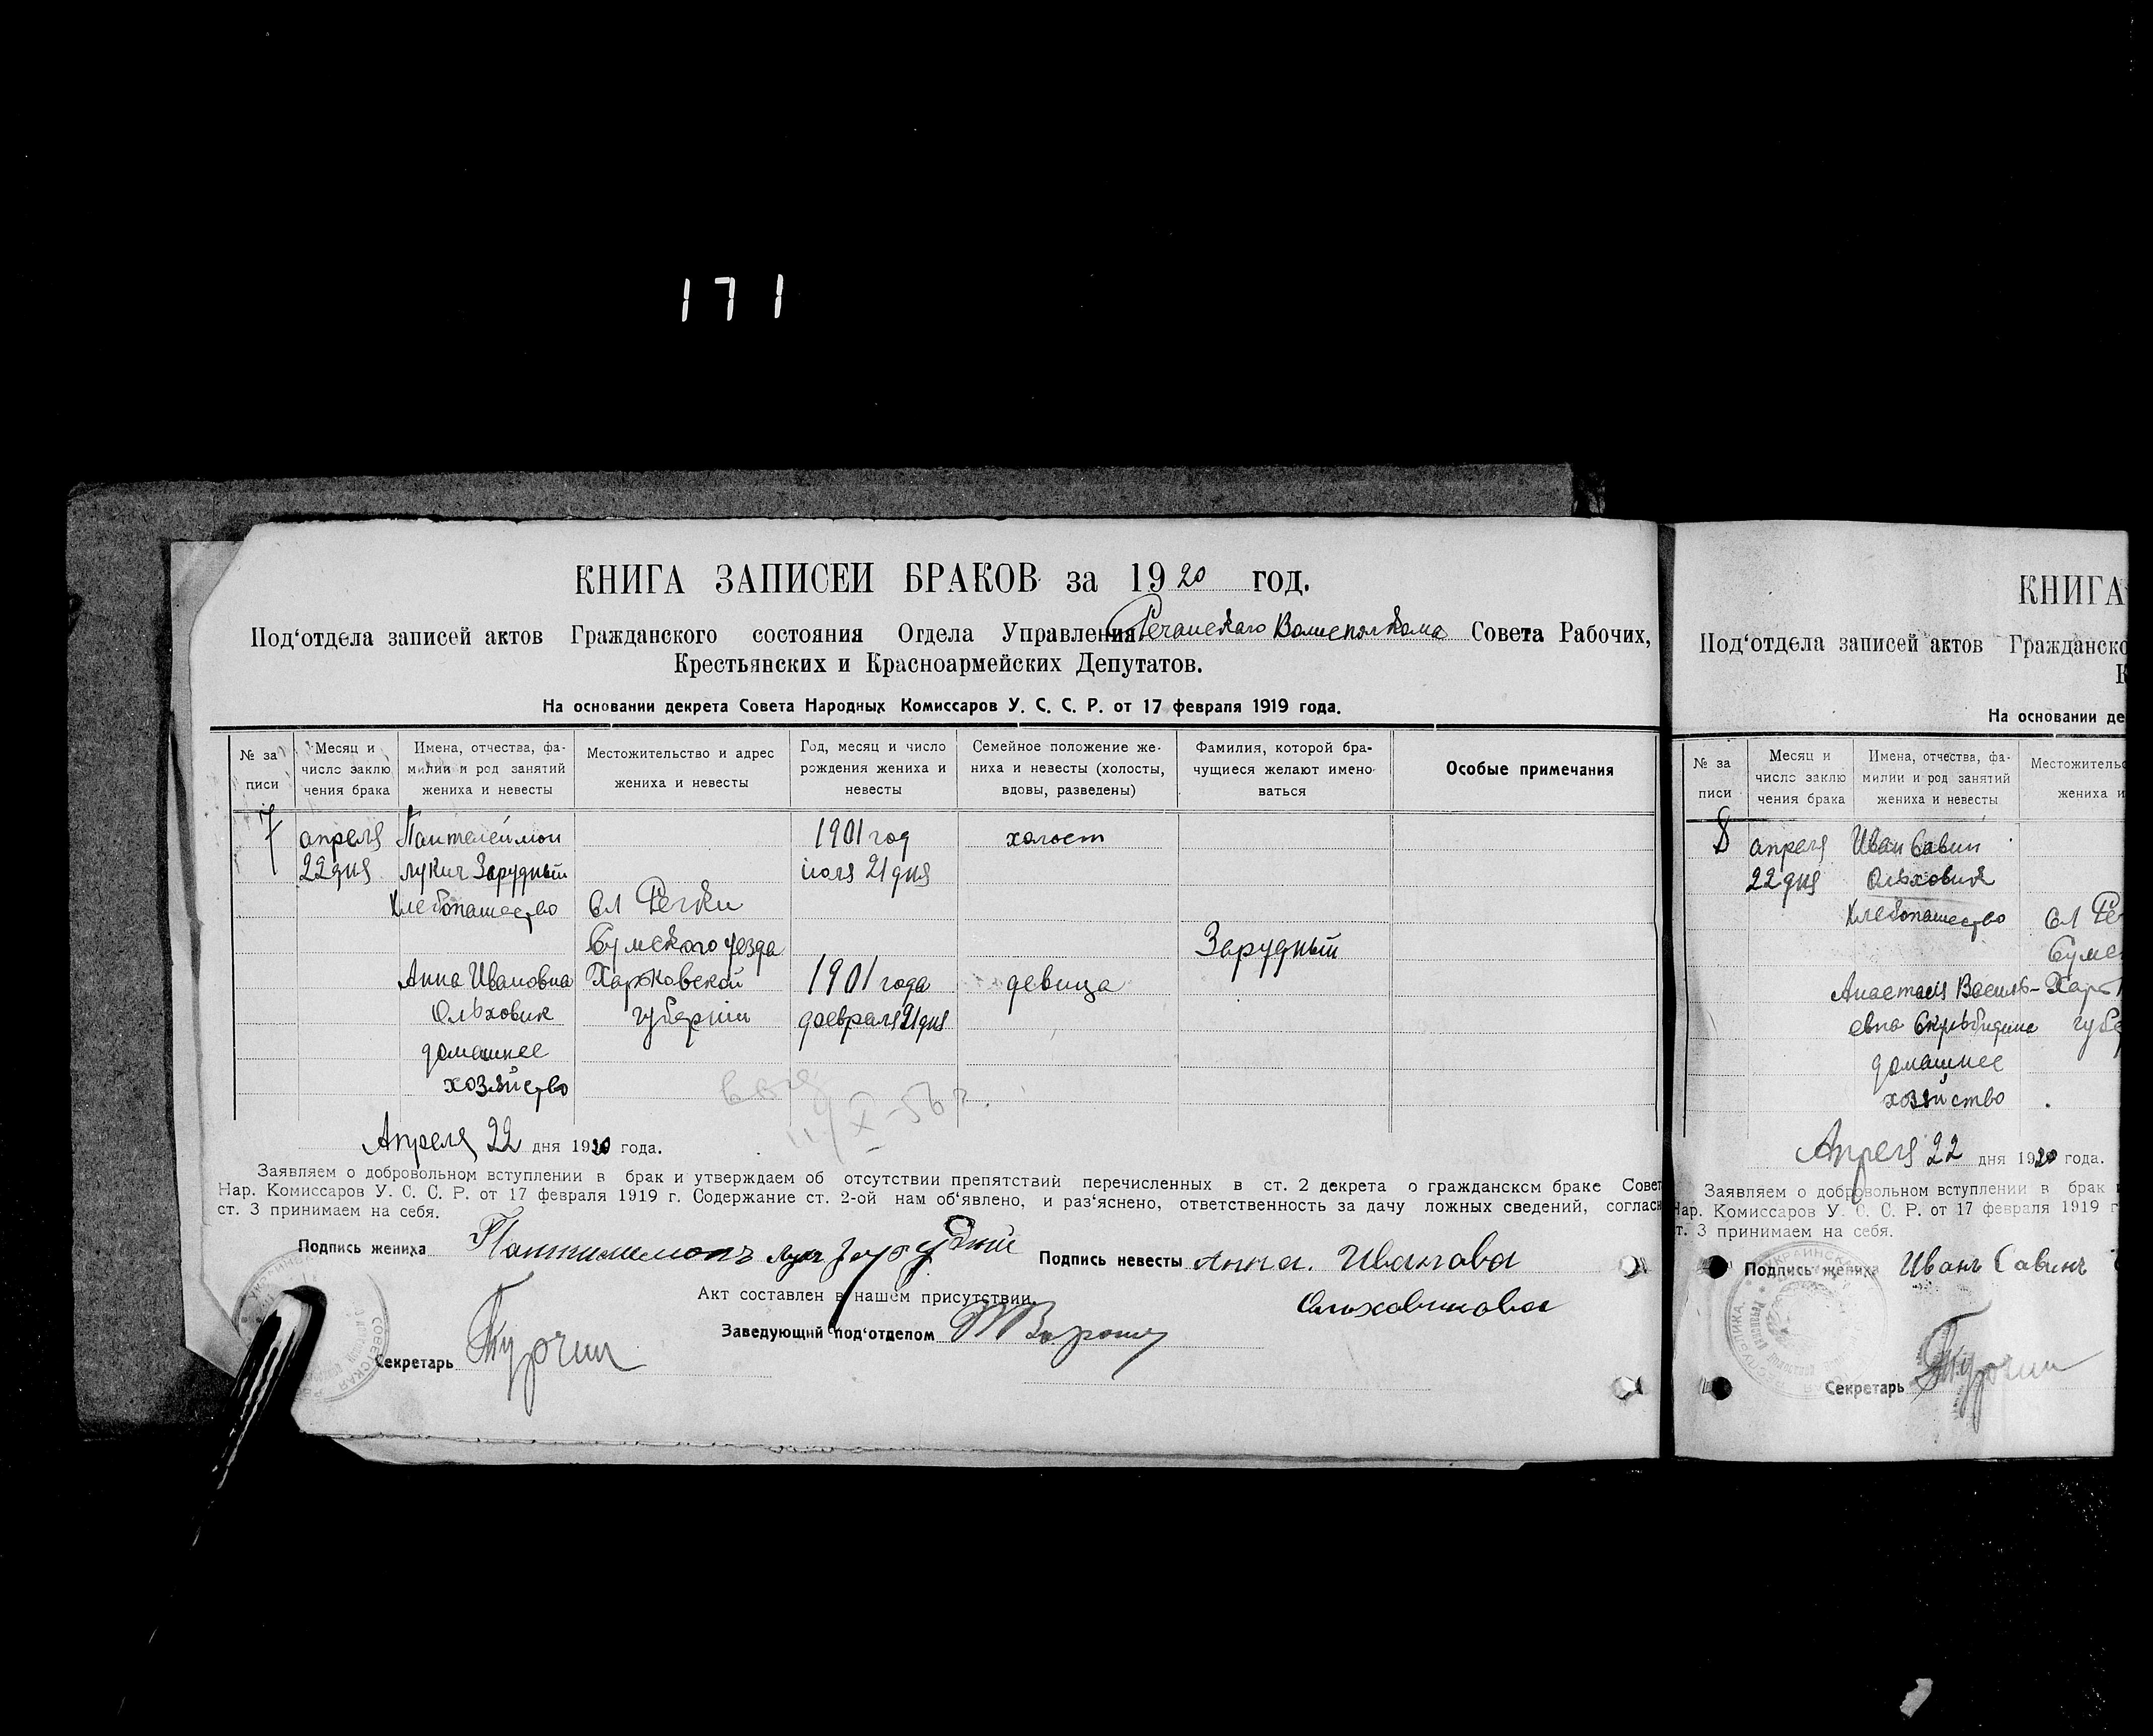 171
КНИГА ЗАПИСЕЙ БРАКОВ за 1920 год.
Под‘отдела записей актов Гражданского состояния Отдела Управления Речанскаго Волисполкома Совета Рабочих,
Крестьянских и Красноармейских Депутатов.
На основании декрета Совета Народных Комиссаров У. С. С. Р. от 17 февраля 1919 года.
№ за писи
Месяц и число заклю чения брака
Имена, отчества, фа- милии и род занятий жениха и невесты
Местожительство и адрес жениха и невесты
Год, месяц и число рождения жениха и невесты
Семейное положение же- ниха и невесты (холосты, вдовы, разведены)
Фамилия, которой бра- чущиеся желают имено- ваться
Особые примечания
7 апреля Пантелеймон 1901 год холост
22 дня лукич Зарудный июля 21 дня
Хлебопашество Сл Речки
Сумского уезда Зарудный
Анна Ивановна Харьковской 1901 года девица
Ольховик губернии февраля 21 дня
домашнее
хозяйство
Апреля 22 дня 1920 года.
Заявляем о добровольном вступлении в брак и утверждаем об отсутствии препятствий перечисленных в ст. 2 декрета о гражданском браке Совет
Нар. Комиссаров У. С. С. Р. от 17 февраля 1919 г. Содержание ст. 2-ой нам об‘явлено, и раз‘яснено, ответственность за дачу ложных сведений, согласн
ст. 3 принимаем на себя.
Подпись жениха Подпись невесты Анна. Иванава
Акт составлен в нашем присутствии
Ольховикова
Заведующий под‘отделом
Секретарь
КНИГА
Под‘отдела записей актов Гражданско
К
На основании де
№ за писи
Месяц и число заклю чения брака
Имена, отчества, фа- милии и род занятий жениха и невесты
Местожительс жениха и
8 апреля Иван Савин
22 дня Ольховик
Хлебопашество Сл Ре
Сумс
Анастасия Василь- Харь
евна губе
домашнее
хозяйство
Апреля 22 дня 1920 года.
Заявляем о добровольном вступлении в брак и
Нар. Комиссаров У. С. С. Р. от 17 февраля 1919 г
ст. 3 принимаем на себя.
Подпись жениха Иванъ Савинъ
Секретарь